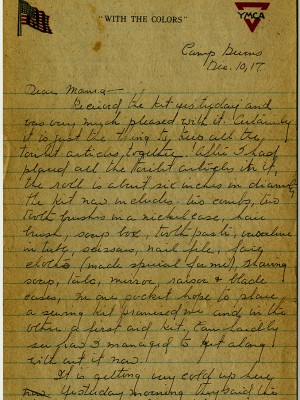 "WITH THE COLORS"
YMCA
Camp Burns
Dec. 10, 17.
Dear Mama—
Received the kit yesterday and
was very much pleased with it. Certainly
it is just the thing to keep all the
toilet articles together. After I had
placed all the toilet articles in it,
the roll is about six inches in diameter
the kit now includes two combs, two
tooth brushes in a nickel case, hair
brush, soap box, tooth paste, vaseline
in tube, scissors, nail file, face
cloths (made special for me), shaving
soap, talc, mirror, razor & blade
cases, in one pocket hope to place
a sewing kit promised me and in the
other a first aid kit. Can hardly
see how I managed to get along
with out it now.
It is getting very cold up here
now. Yesterday morning they said this